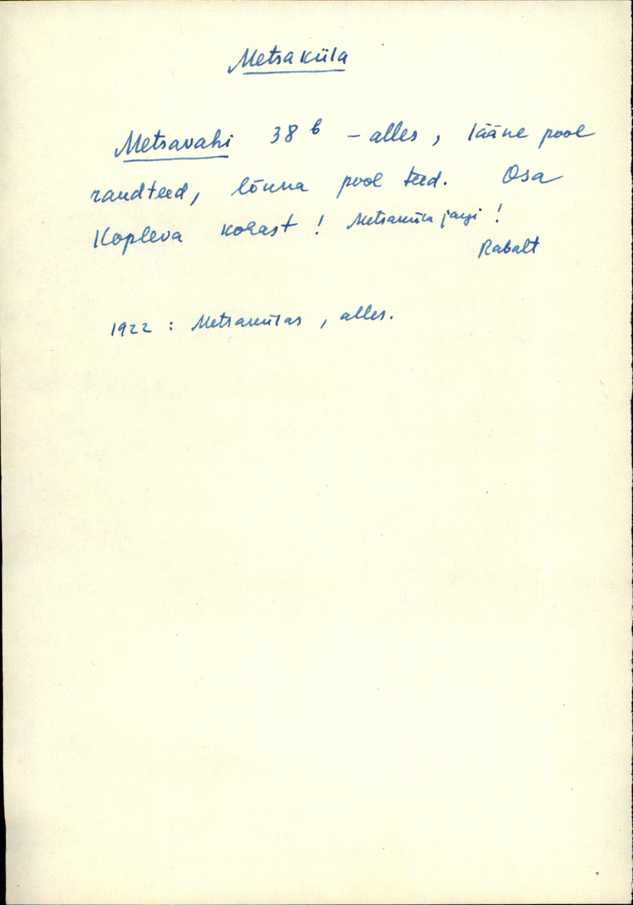 Metsaküla
Metsavahi 38 b – alles, lääne pool
randteed, lõuna pool teed. Osa
Kopleva kohast! Metsaküla järgi!
Rabalt
1922 : Metsakülas, alles.